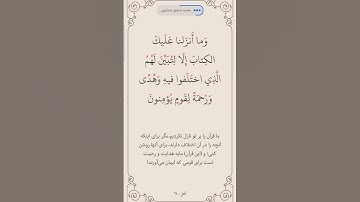 وَما أَنزَلنا عَلَيكَ
الكِتابَ إِلّا لِتُبَيِّنَ لَهُمُ
الَّذِي اختَلَفوا فيهِ وَهُدًى
وَرَحمَةً لِقَومٍ يُؤمِنونَ
ما قرآن را بر تو نازل نکردیم مگر برای اینکه
آنچه را در آن اختلاف دارند، برای آنها روشن
کنی؛ و (این قرآن) مایه هدایت و رحمت
است برای قومی که ایمان می‌آورند!